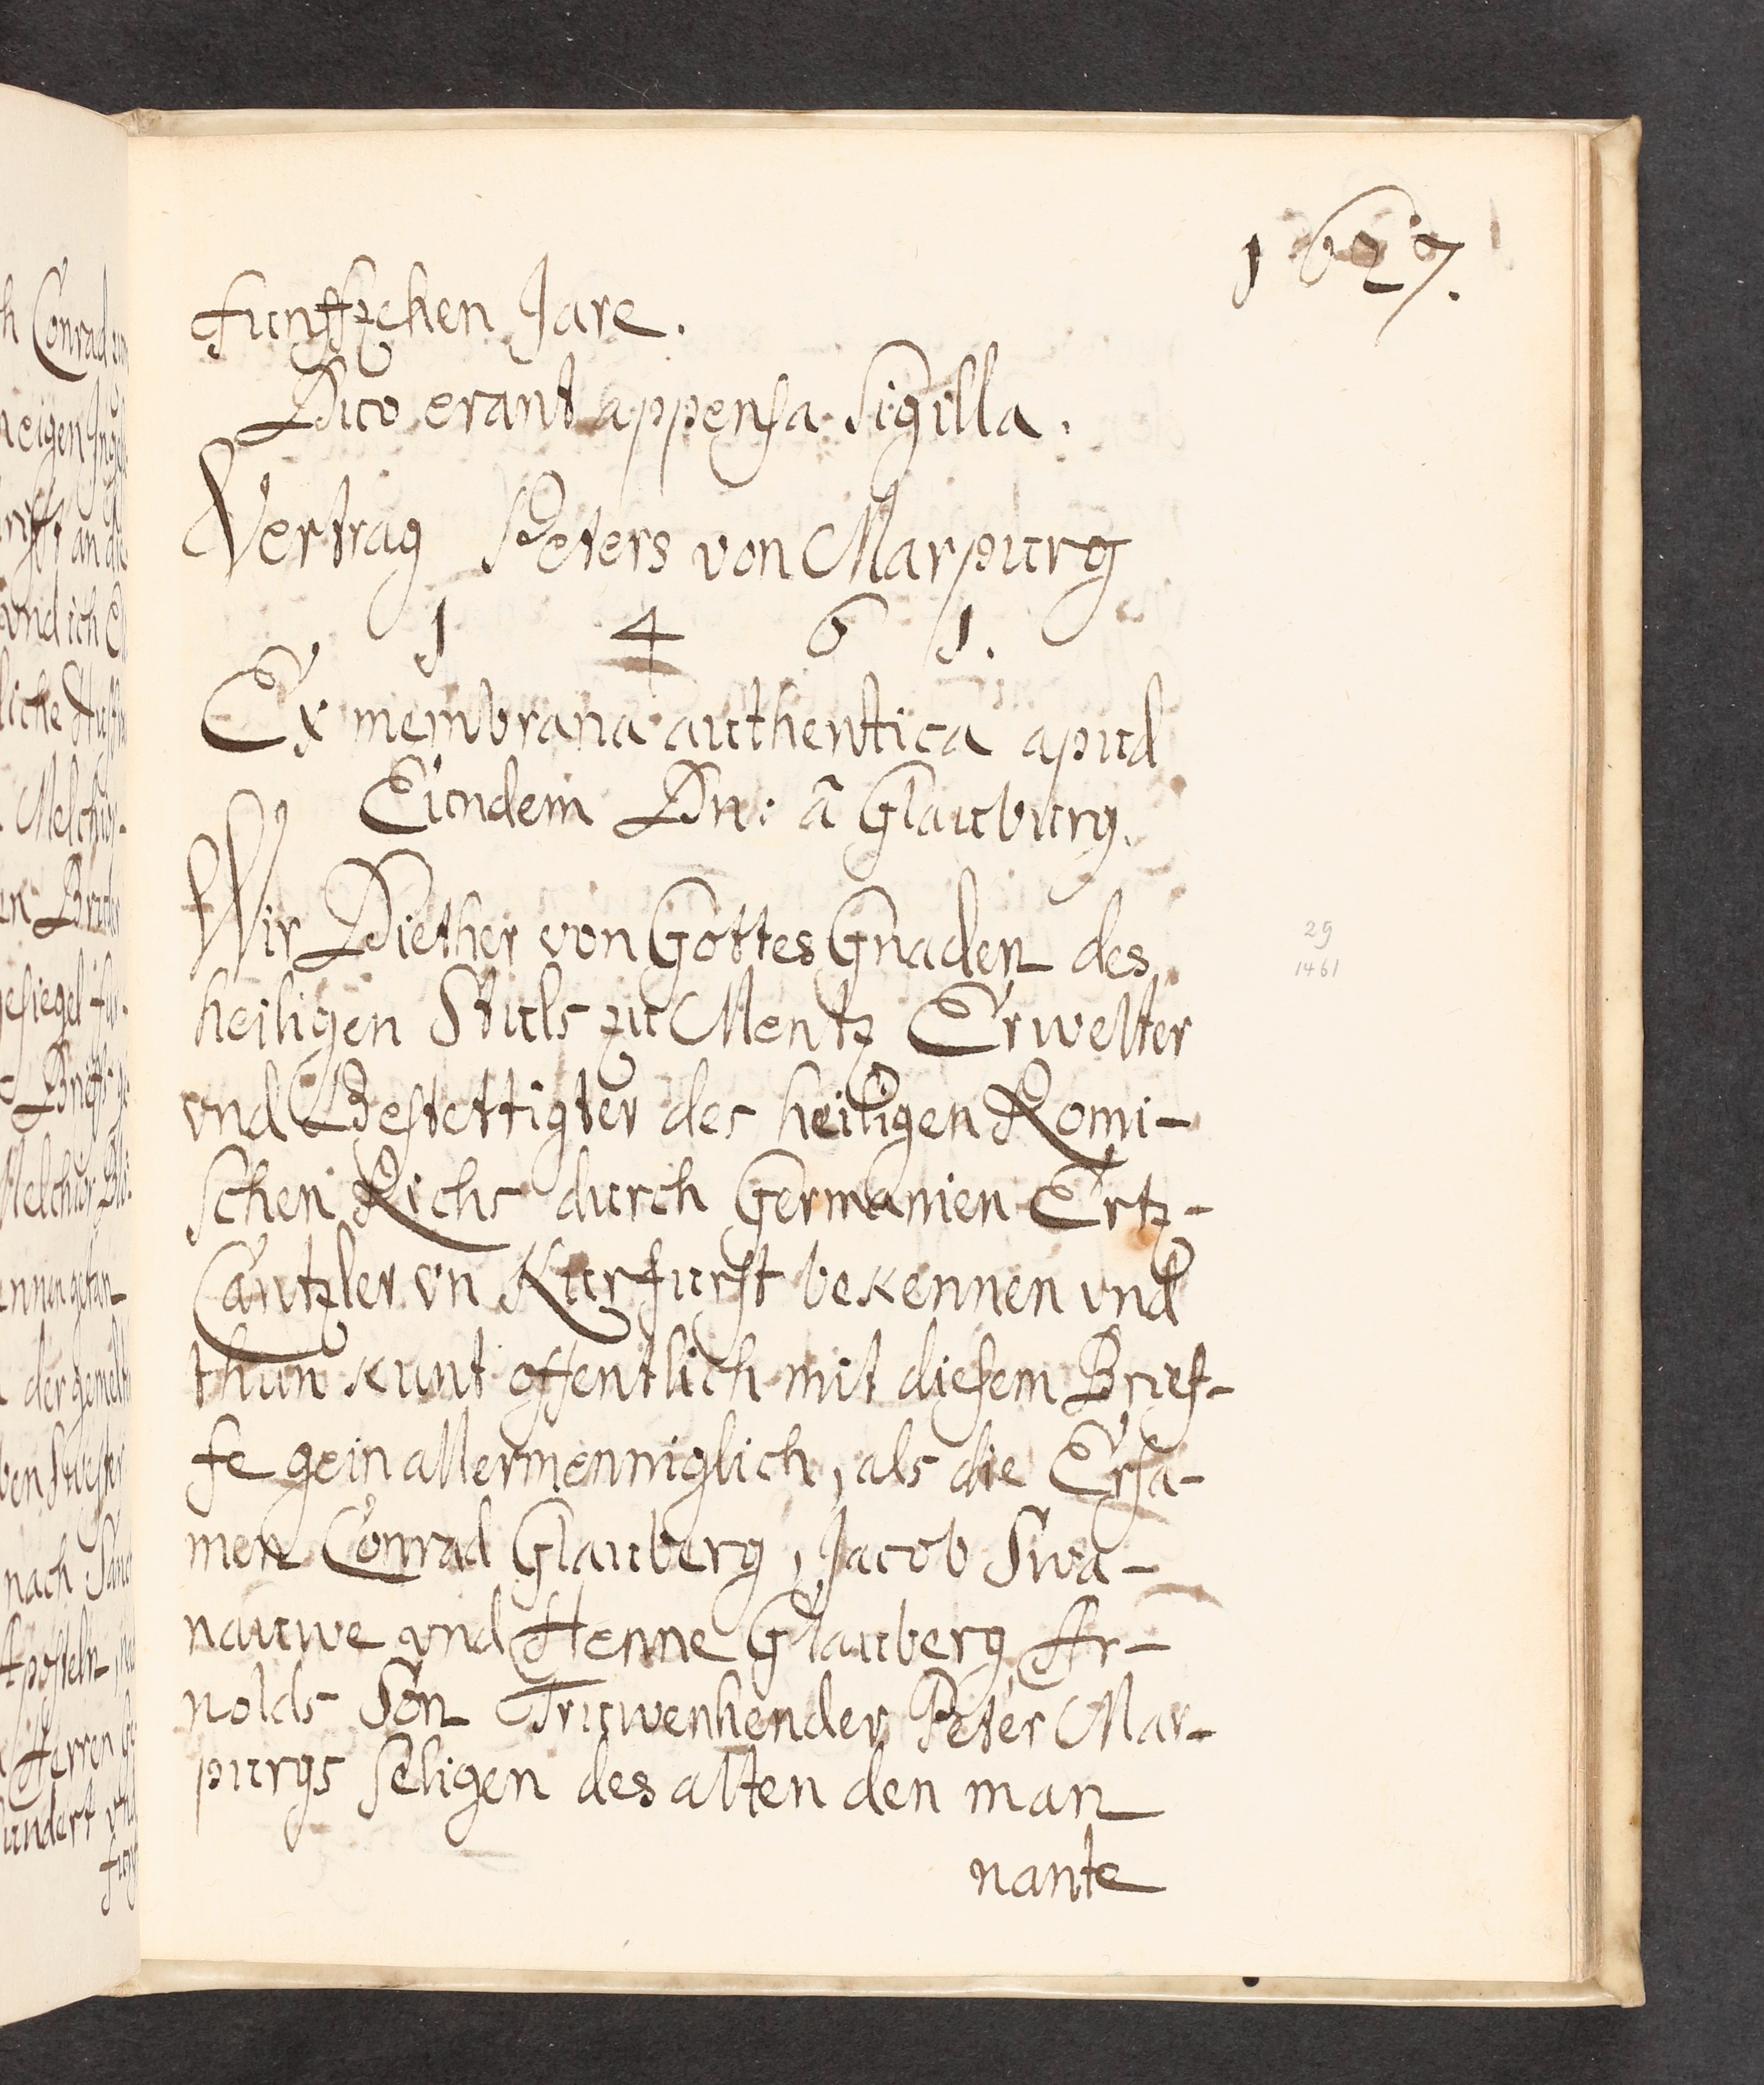 1627.
funffzehen Jare.
Duo erant appensa Sigilla.
Vertrag Peters von Marpurg
1 4 6 1.
Ex membrana authentica apud
Eundem Dn: à Glauburg.
Wir Diether von Gottes Gnaden des
29
1461
heiligen Stuls zu Mentz Erwelter
vnd Bestettigter des heiligen Romi-
schen Richs durch Germanien Ertz-
Cantzler vn Kurfurst bekennen vnd
thun kunt offentlich mit diesem Brief-
fe gein allermenniglich, als die Ersa-
men Conrad Glauberg, Jacob Swa-
nauwe vnd Henne Glauberg Ar-
nolds Son Truwenhender Peter Mar-
purgs seligen des alten den man
nante